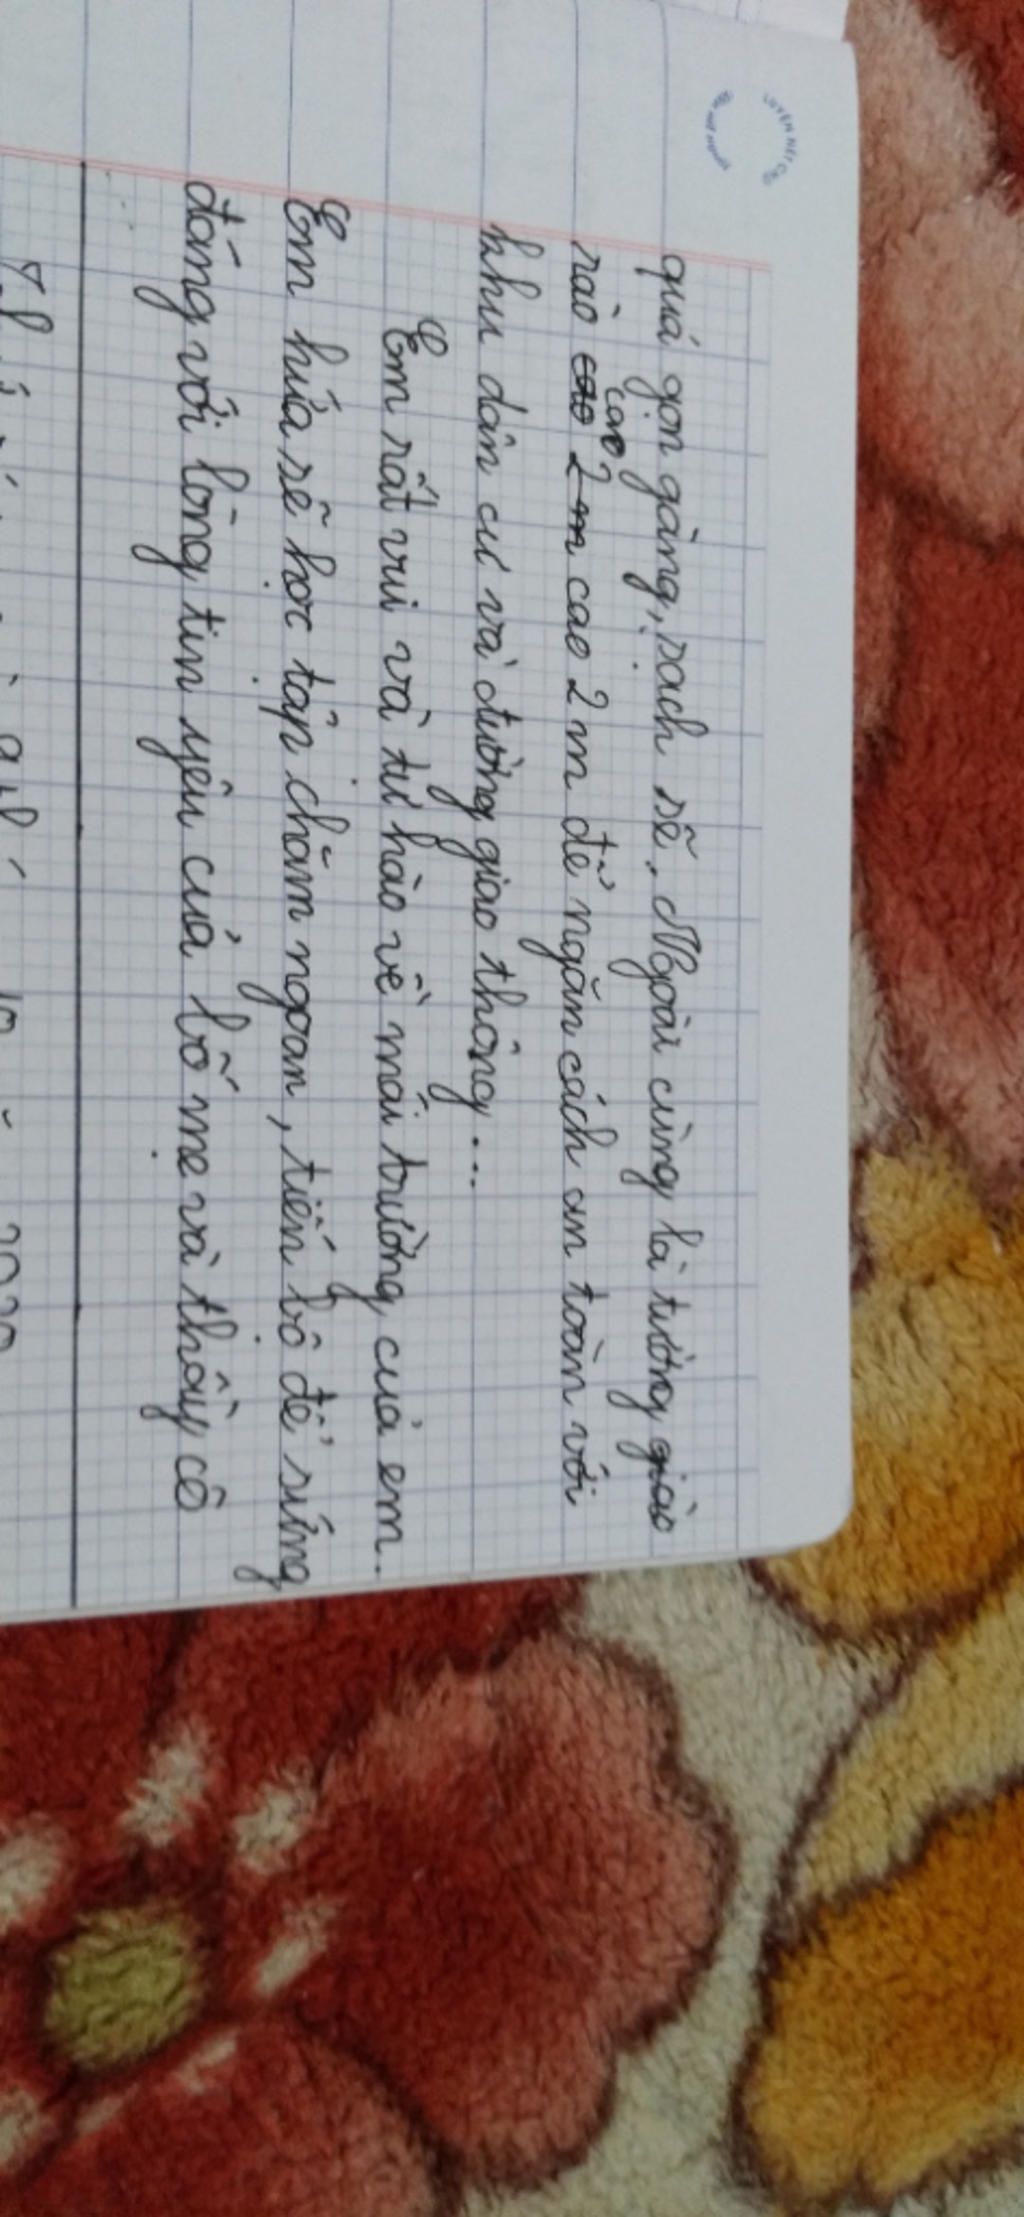 LUYỆN NÉT CHỮ
quá gọn gàng, sạch sẽ. Ngoài cùng là tường giào
rào cao 2 m cao 2 m để ngăn cách an toàn với
cao
khu dân cư và đường giao thông...
Em rất vui và tự hào về mái trường của em.
Em hứa sẽ học tập chăm ngoan, tiến bộ để xứng
đáng với lòng tin yêu của bố mẹ và thầy cô